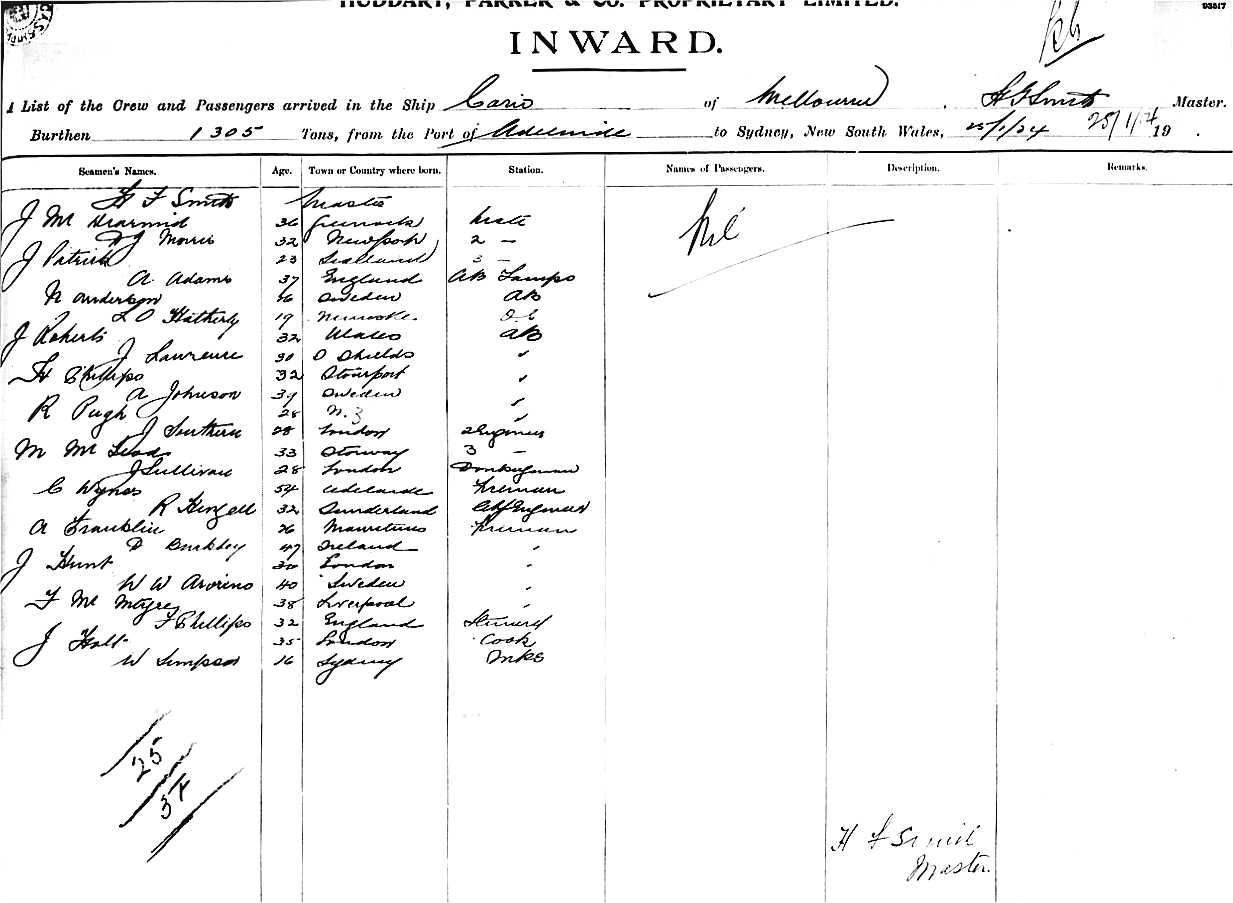 HUDDART, PARKER & CO. PROPRIETARY LIMITED.
93517
INWARD.
A List of the Crew and Passengers arrived in the Ship Corio of Melbourne, H F Smith Master.
Burthen 1305 Tons, from the Port of Adelaide to Sydney, New South Wales, 25/1/24 25/1/24 19 .
Seamen's Names. Age. Town or Country where born. Station. Names of Passengers. Description. Remarks.
H F Smith Master
J Mc Dearmid 36 Greenock Mate Nil
D J Morris 32 Newport 2 —
J Patrick 23 Scotland 3 —
A Adams 37 England AB Lamps
N Anderson 26 Sweden AB
L O Hatherly 19 OS
J Roberts 32 Wales AB
J Lawrence 30 S Shields "
H Phillips 32 Stourport "
A Johnson 39 Sweden "
R Pugh 28 N.Z "
J Southern 28 London 2 Engineer
M Mc Leod 33 Stornway 3 —
J Sullivan 28 London Donkeyman
C Wynes 54 Adelaide Fireman
R 32 Sunderland Ch Engineer
A Franklin 26 Mauritius Fireman
D Buckley 47 Ireland "
J Hunt 30 London "
W W 40 Sweden "
F Mc 38 Liverpool "
F Phillips 32 England Steward
J Holt 35 London Cook
W Simpson 16 Sydney
25
H F Smith
Master.